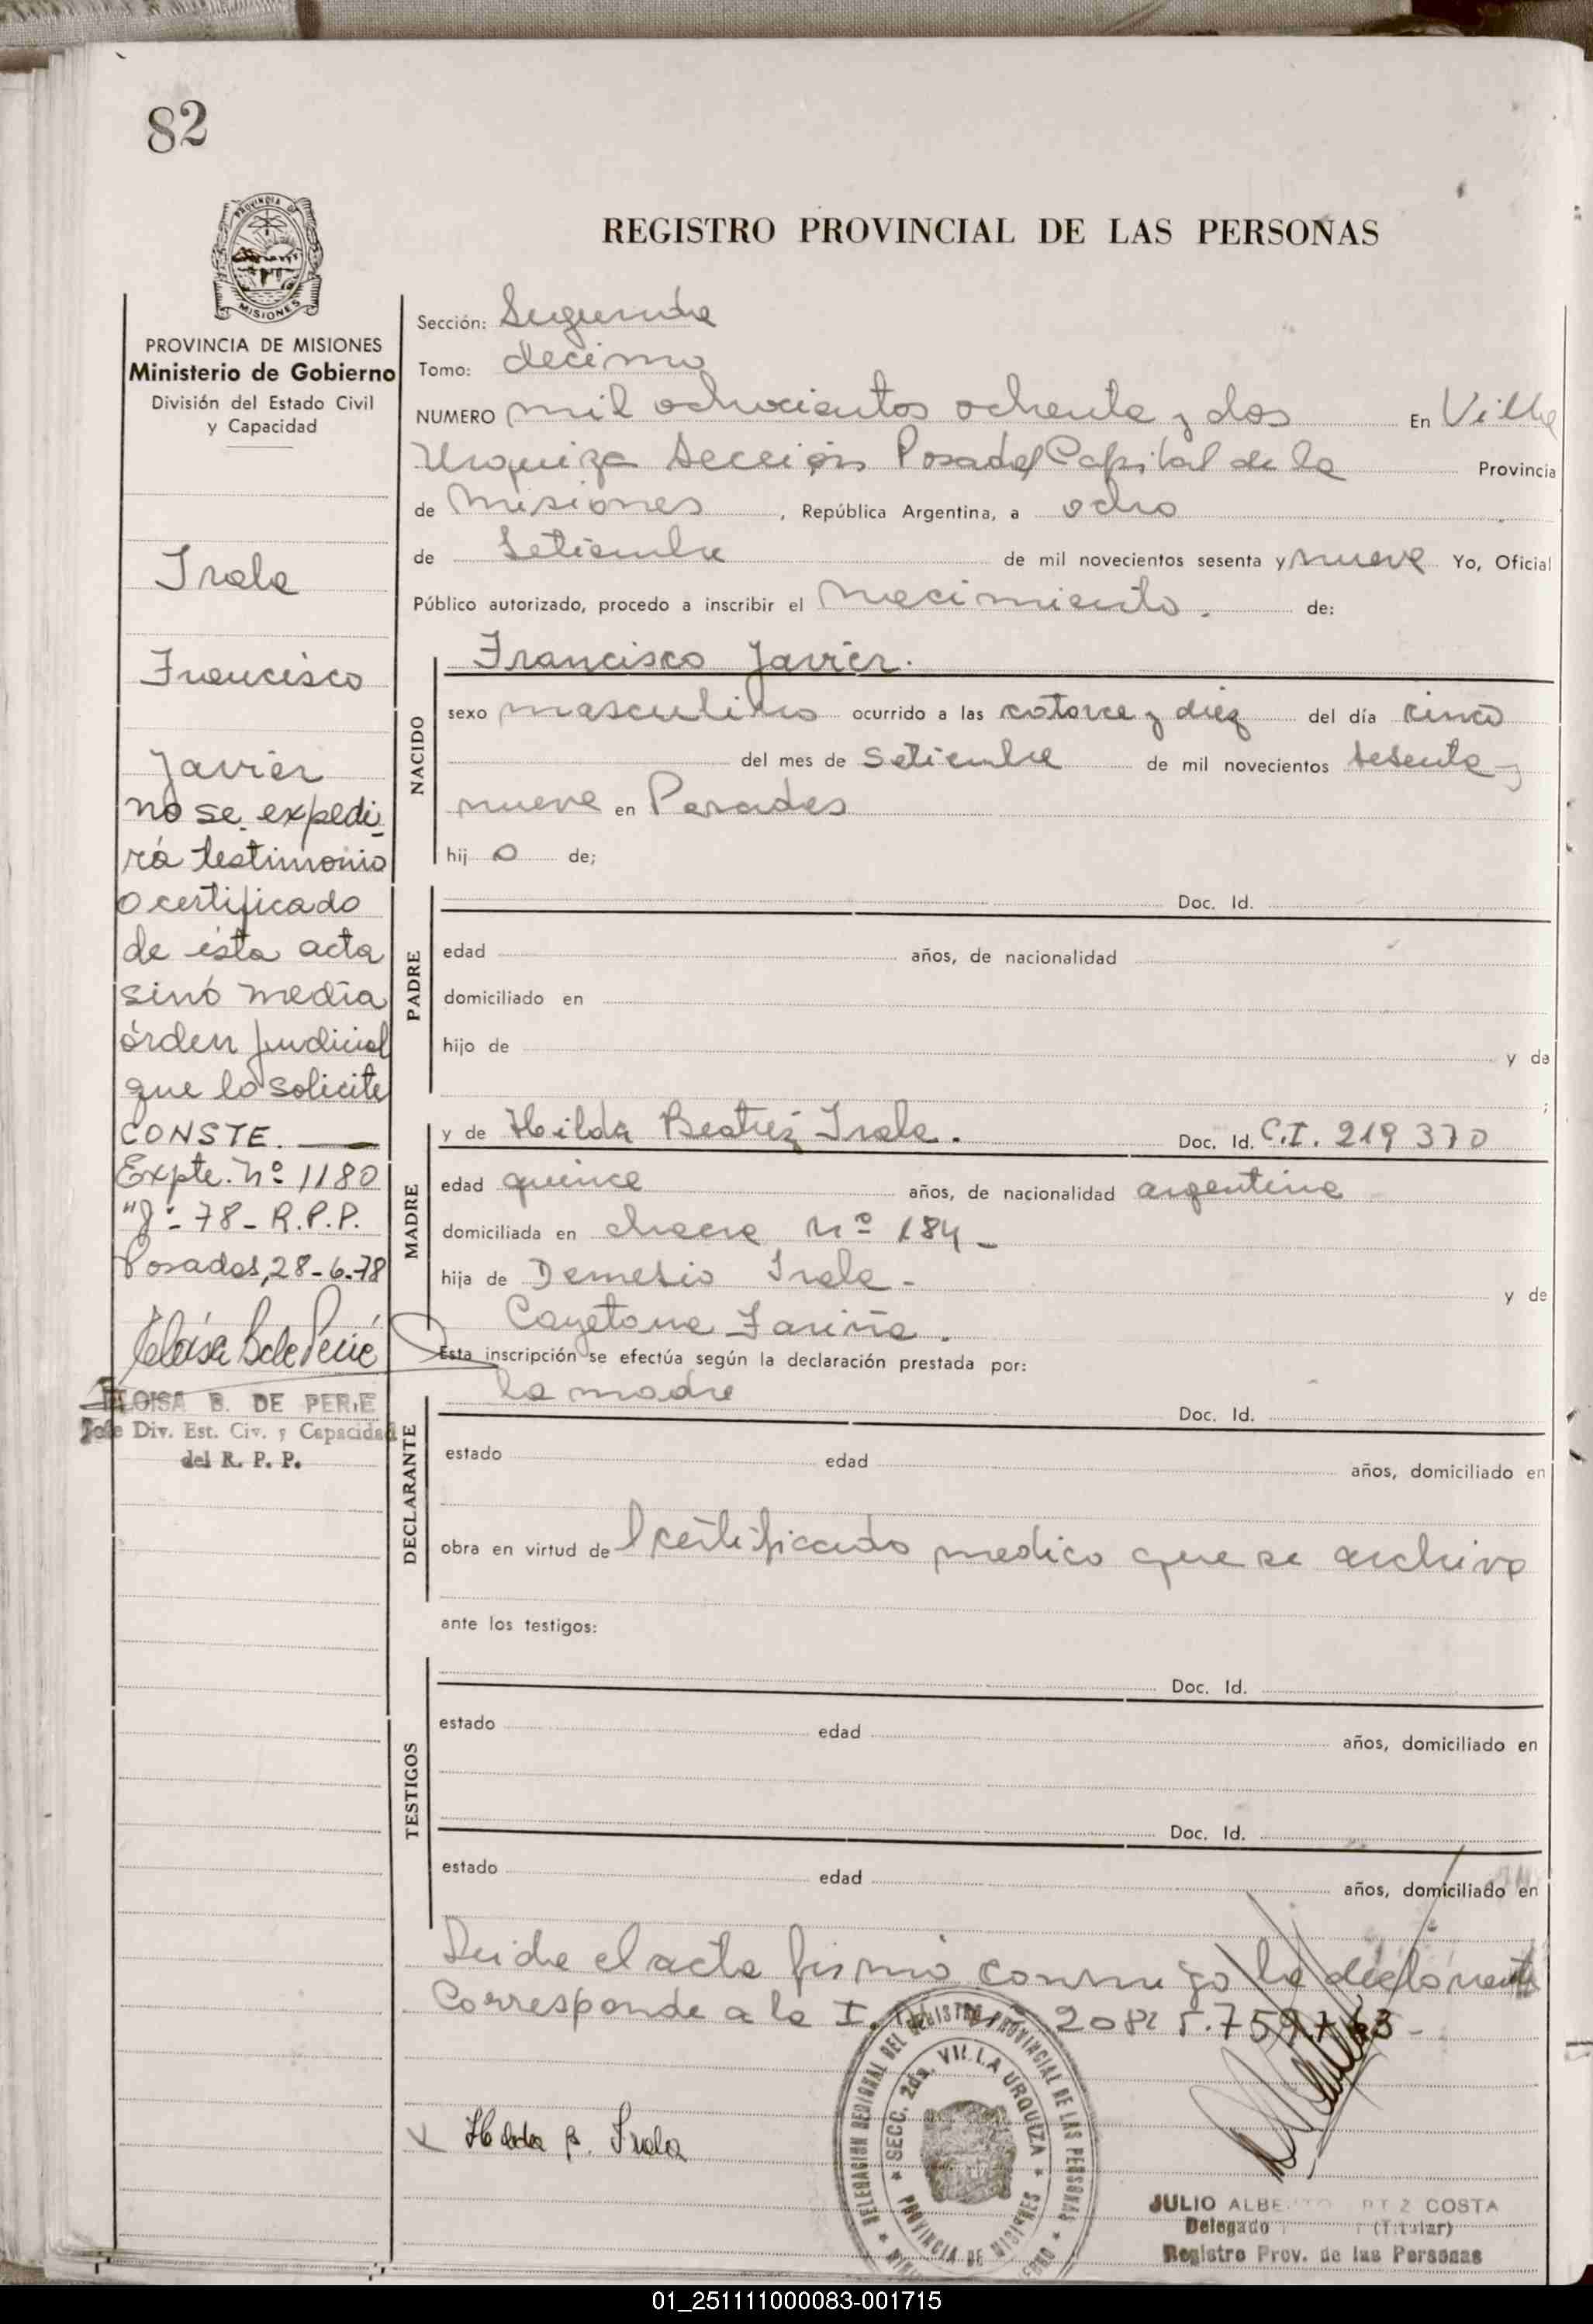 82
PROVINCIA DE
MISIONES
PROVINCIA DE MISIONES
Ministerio de Gobierno
División del Estado Civil
y Capacidad
Irala
Francisco
Javier
no se expedi-
rá testimonio
o certificado
de ésta acta
sinó media
órden judicial
que lo solicite
CONSTE.
Expte. Nº 1180
"J"- 78 - R.P.P.
Posadas, 28-6-78
ELOISA B. DE PERIE
Jefe Div. Est. Civ. y Capacidad
del R. P. P.
REGISTRO PROVINCIAL DE LAS PERSONAS
Sección: Segunda
Tomo: decimo
NUMERO mil ochocientos ochenta y dos En Villa
Urquiza Sección Posadas Capital de la Provincia
de Misiones, República Argentina, a ocho
de Setiembre de mil novecientos sesenta y nueve Yo, Oficial
Público autorizado, procedo a inscribir el nacimiento. de:
NACIDO
Francisco Javier.
sexo masculino ocurrido a las catorce y diez del día cinco
del mes de Setiembre de mil novecientos sesenta y
nueve en Posadas
hij o de;
PADRE
Doc. Id.
edad años, de nacionalidad
domiciliado en
hijo de y de
;
MADRE
y de Hilda Beatriz Irala. Doc. Id. C.I. 219 370
edad quince años, de nacionalidad argentina
domiciliada en chacra Nº 184 -
hija de Demesio Irala - y de
Cayetana Fariña.
Esta inscripción se efectúa según la declaración prestada por:
DECLARANTE
la madre
Doc. Id.
estado edad años, domiciliado en
obra en virtud de certificado medico que se archiva
ante los testigos:
TESTIGOS
Doc. Id.
estado edad años, domiciliado en
Doc. Id.
estado edad años, domiciliado en
Leida el acta firmó conmigo la declarante
Corresponde a la I. 208
Hilda B. Irala
DELEGACION REGIONAL DEL REGISTRO PROVINCIAL DE LAS PERSONAS
SECC. 2da. VILLA URQUIZA
PROVINCIA DE MISIONES
JULIO ALBE COSTA
Delegado (Titular)
Registro Prov. de las Personas
01_251111000083-001715